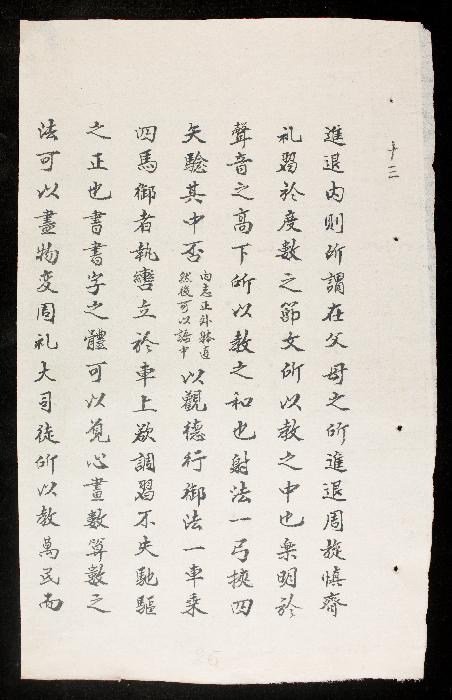 十三
進退內則所謂在父母之所進退周旋慎齊
礼習於度數之節文所以教之中也樂明於
聲音之高下所以教之和也射法一弓挾四
矢驗其中否內志正外體直然後可以語中以觀德行御法一車乗
四馬御者執轡立於車上欲調習不失馳驅
之正也書書字之體可以見心畫數算數之
法可以盡物変周礼大司徒所以教萬民而